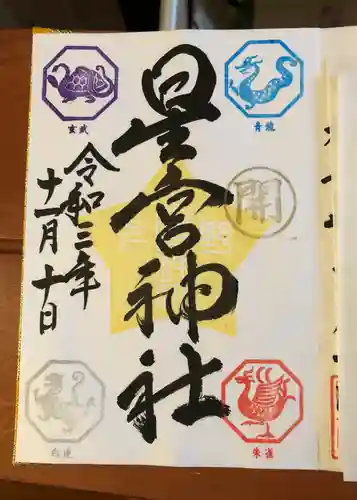 星宮神社
令和三年
十一月十日
玄武
青龍
開
白虎
朱雀